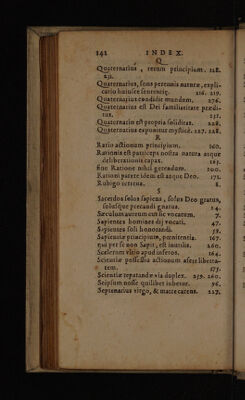 242 INDEX.
Q
Quaternarius, rerum principium. 228.
231.
Quaternarius, fons perennis naturæ, expli-
catio huiusce sententiæ. 226. 219.
Quaternarius condidit mundum. 276.
Quaternarius est Dei familiaritate prædi-
tus. 231.
Quaternarius est propria soliditas. 228.
Quaternarius exponitur mysticè. 227. 228.
R
Ratio actionum principium. 160.
Rationis est particeps nostra natura atque
deliberationis capax. 125.
Sine Ratione nihil gerendum. 200.
Ratiom parere idem est atque Deo. 172.
Rubigo terrena. 8.
S
Sacerdos solus sapiens, solus Deo gratus,
solusque precandi gnarus. 24.
Sæculum aureum cur sic vocatum. 7.
Sapientes homines dij vocati. 47.
Sapientes soli honorandi. 38.
Sapientiæ principium, pœnitentia. 167.
qui per se non Sapit, est inutilis. 260.
Scelerum vltio apud inferos. 164.
Scientiæ possessio actionum affert liberta-
tem. 175.
Scientiæ reparandæ via duplex. 259. 260.
Seipsum nosse quilibet iubetur. 96.
Septenarius virgo, & matre carens. 227.